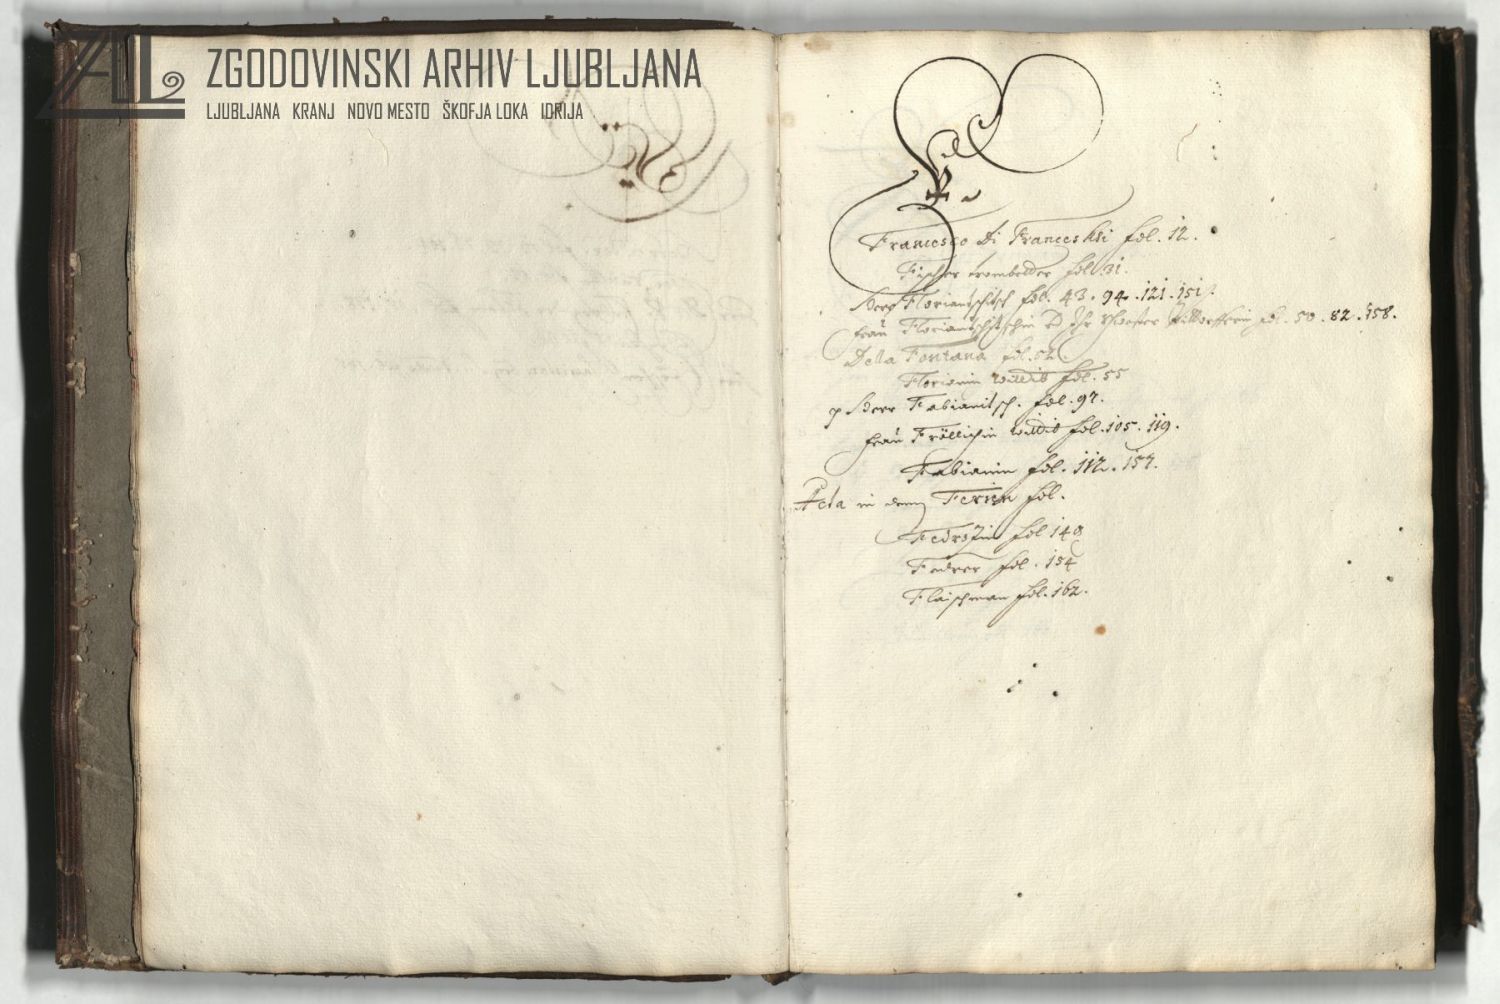 ZGODOVINSKI ARHIV LJUBLJANA
LJUBLJANA KRANJ NOVO MESTO ŠKOFJA LOKA IDRIJA
F
Francesco Di Franceski fol. 12.
Fischer fol 31.
Herr Floriantschitsch fol. 43. 94. 121. 151.
frau Floriantschitschin Ihr fol. 50. 82. 158.
Della Fontana fol. 52.
Florianin wittib fol. 55
Herr Fabianitsch. fol. 97.
frau Fröllichin wittib fol. 105. 119.
Fabianin fol. 112. 157.
Acta in fol.
fol 148
fol. 154
Flaischman fol. 162.